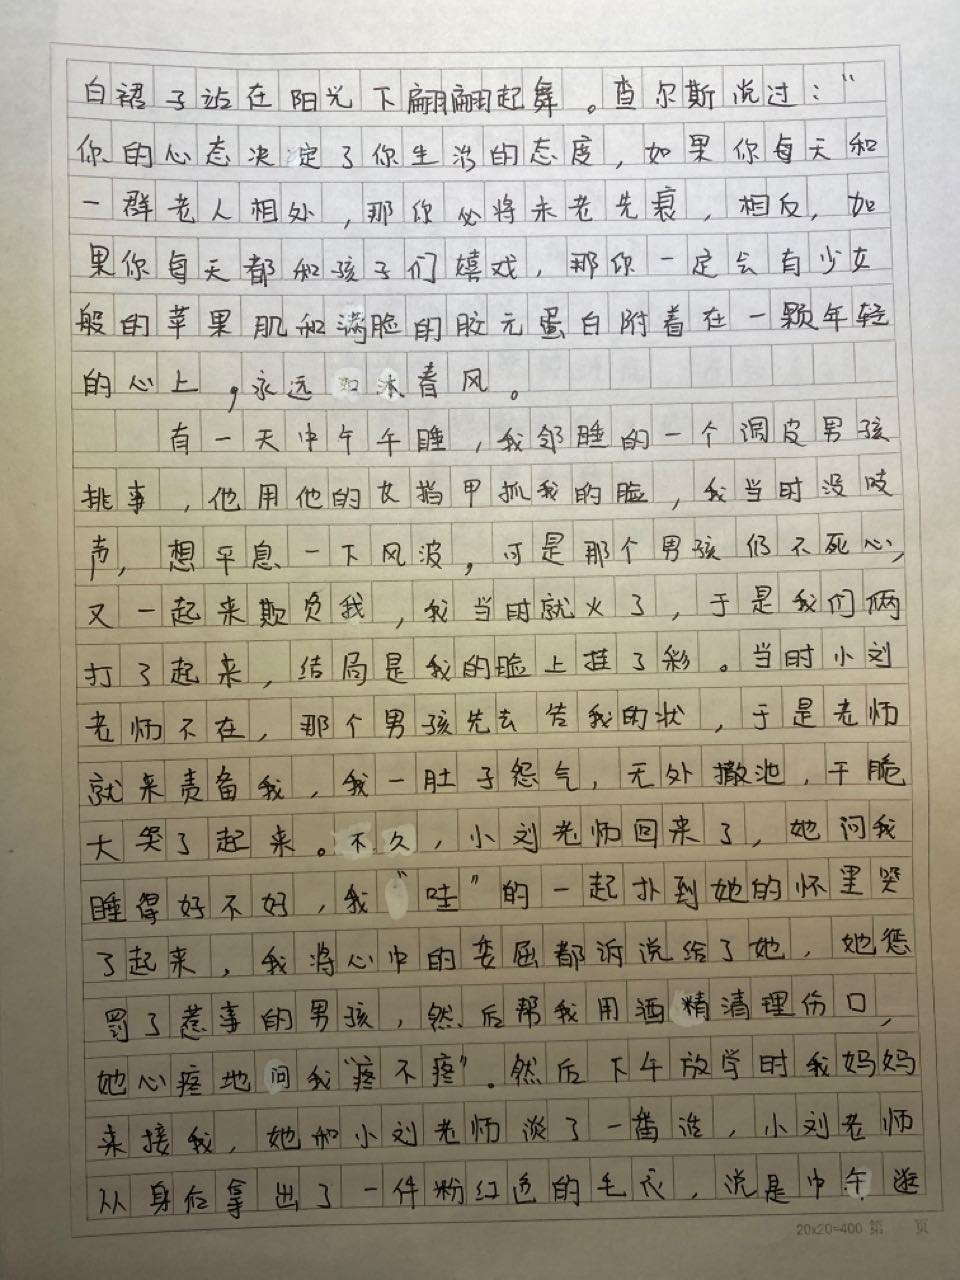 白裙子站在阳光下翩翩起舞。查尔斯说过：“
你的心态决定了你生活的态度，如果你每天和
一群老人相处，那你必将未老先衰，相反，如
果你每天都和孩子们嬉戏，那你一定会有少女
般的苹果肌和满脸的胶元蛋白附着在一颗年轻
的心上，永远如沐春风。
有一天中午午睡，我邻睡的一个调皮男孩
挑事，他用他的女指甲抓我的脸，我当时没吱
声，想平息一下风波，可是那个男孩仍不死心，
又一起来欺负我，我当时就火了，于是我们俩
打了起来，结局是我的脸上挂了彩。当时小刘
老师不在，那个男孩先去告我的状，于是老师
就来责备我，我一肚子怨气，无外撒池，干脆
大哭了起来。不久，小刘老师回来了，她问我
睡得好不好，我“哇”的一起扑到她的怀里哭
了起来，我将心中的委屈都诉说给了她，她惩
罚了惹事的男孩，然后帮我用酒精清理伤口，
她心疼地问我“疼不疼”。然后下午放学时我妈妈
来接我，她和小刘老师谈了一番话，小刘老师
从身后拿出了一件粉红色的毛衣，说是中午逛
20x20=400 第 页